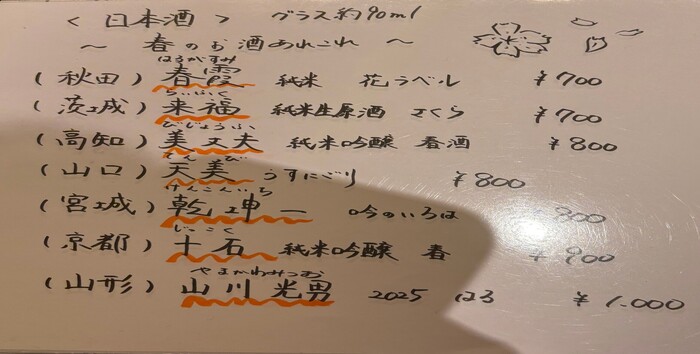 ＜日本酒＞ グラス約90ml
～ 春のお酒あれこれ ～
はるがすみ
(秋田) 春霞 純米 花ラベル ¥700
らいふく
(茨城) 来福 純米生原酒 さくら ¥700
びじょうふ
(高知) 美丈夫 純米吟醸 春酒 ¥800
てんび
(山口) 天美 うすにごり ¥800
けんこんいち
(宮城) 乾坤一 吟のいろは ¥800
じっこく
(京都) 十石 純米吟醸 春 ¥900
やまかわみつお
(山形) 山川光男 2025 はる ¥1,000